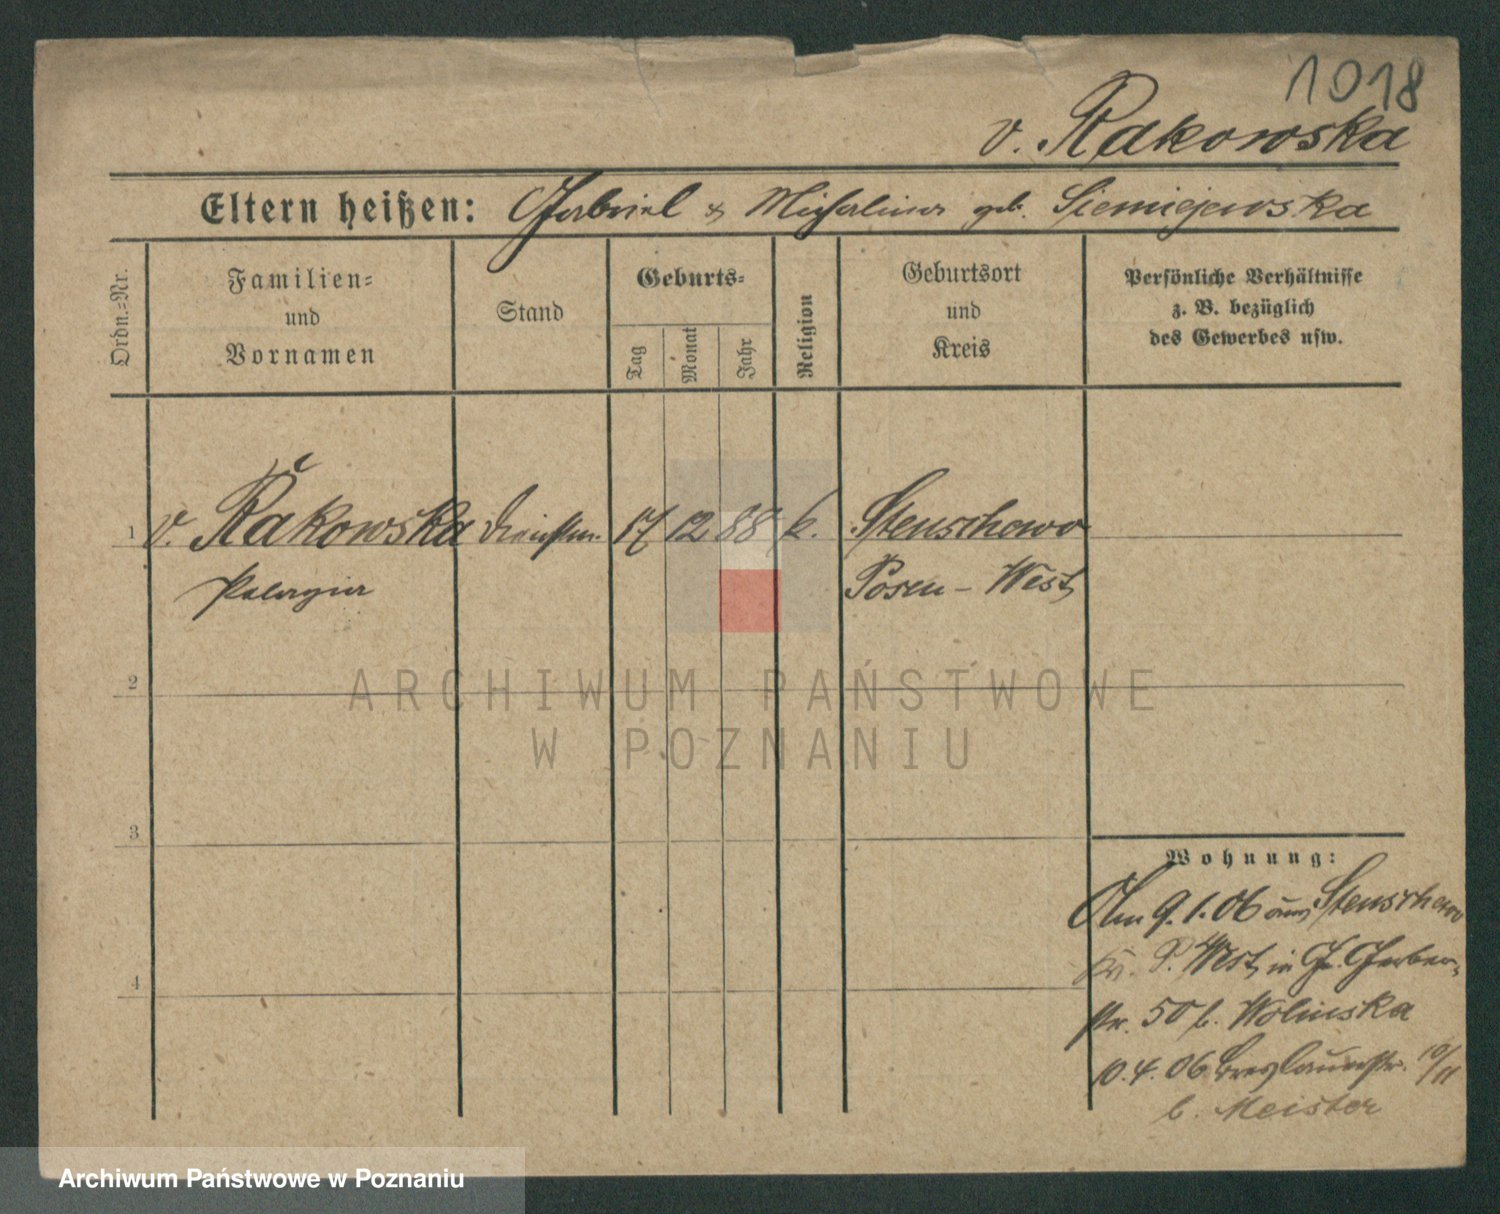 1018
v. Rakowska
Eltern heißen: Gabriel & Michalina geb. Siemiejewska
Ordn.=Nr.
Familien=
und
Vornamen
Stand
Geburts=
Tag
Monat
Jahr
Religion
Geburtsort
und
Kreis
Persönliche Verhältnisse
z. B. bezüglich
des Gewerbes usw.
1 v. Rakowska Dienstm. 17 12 88 k. Stenschewo
Pelagia Posen - West
2
ARCHIWUM PAŃSTWOWE
W POZNANIU
3
Wohnung:
Am 9.1.06 aus Stenschewo
Kr. P. West, in Gr. Gerber-
4
str. 50 b. Wolinska
10.4.06 Breslauerstr. 10/11
b. Meister
Archiwum Państwowe w Poznaniu